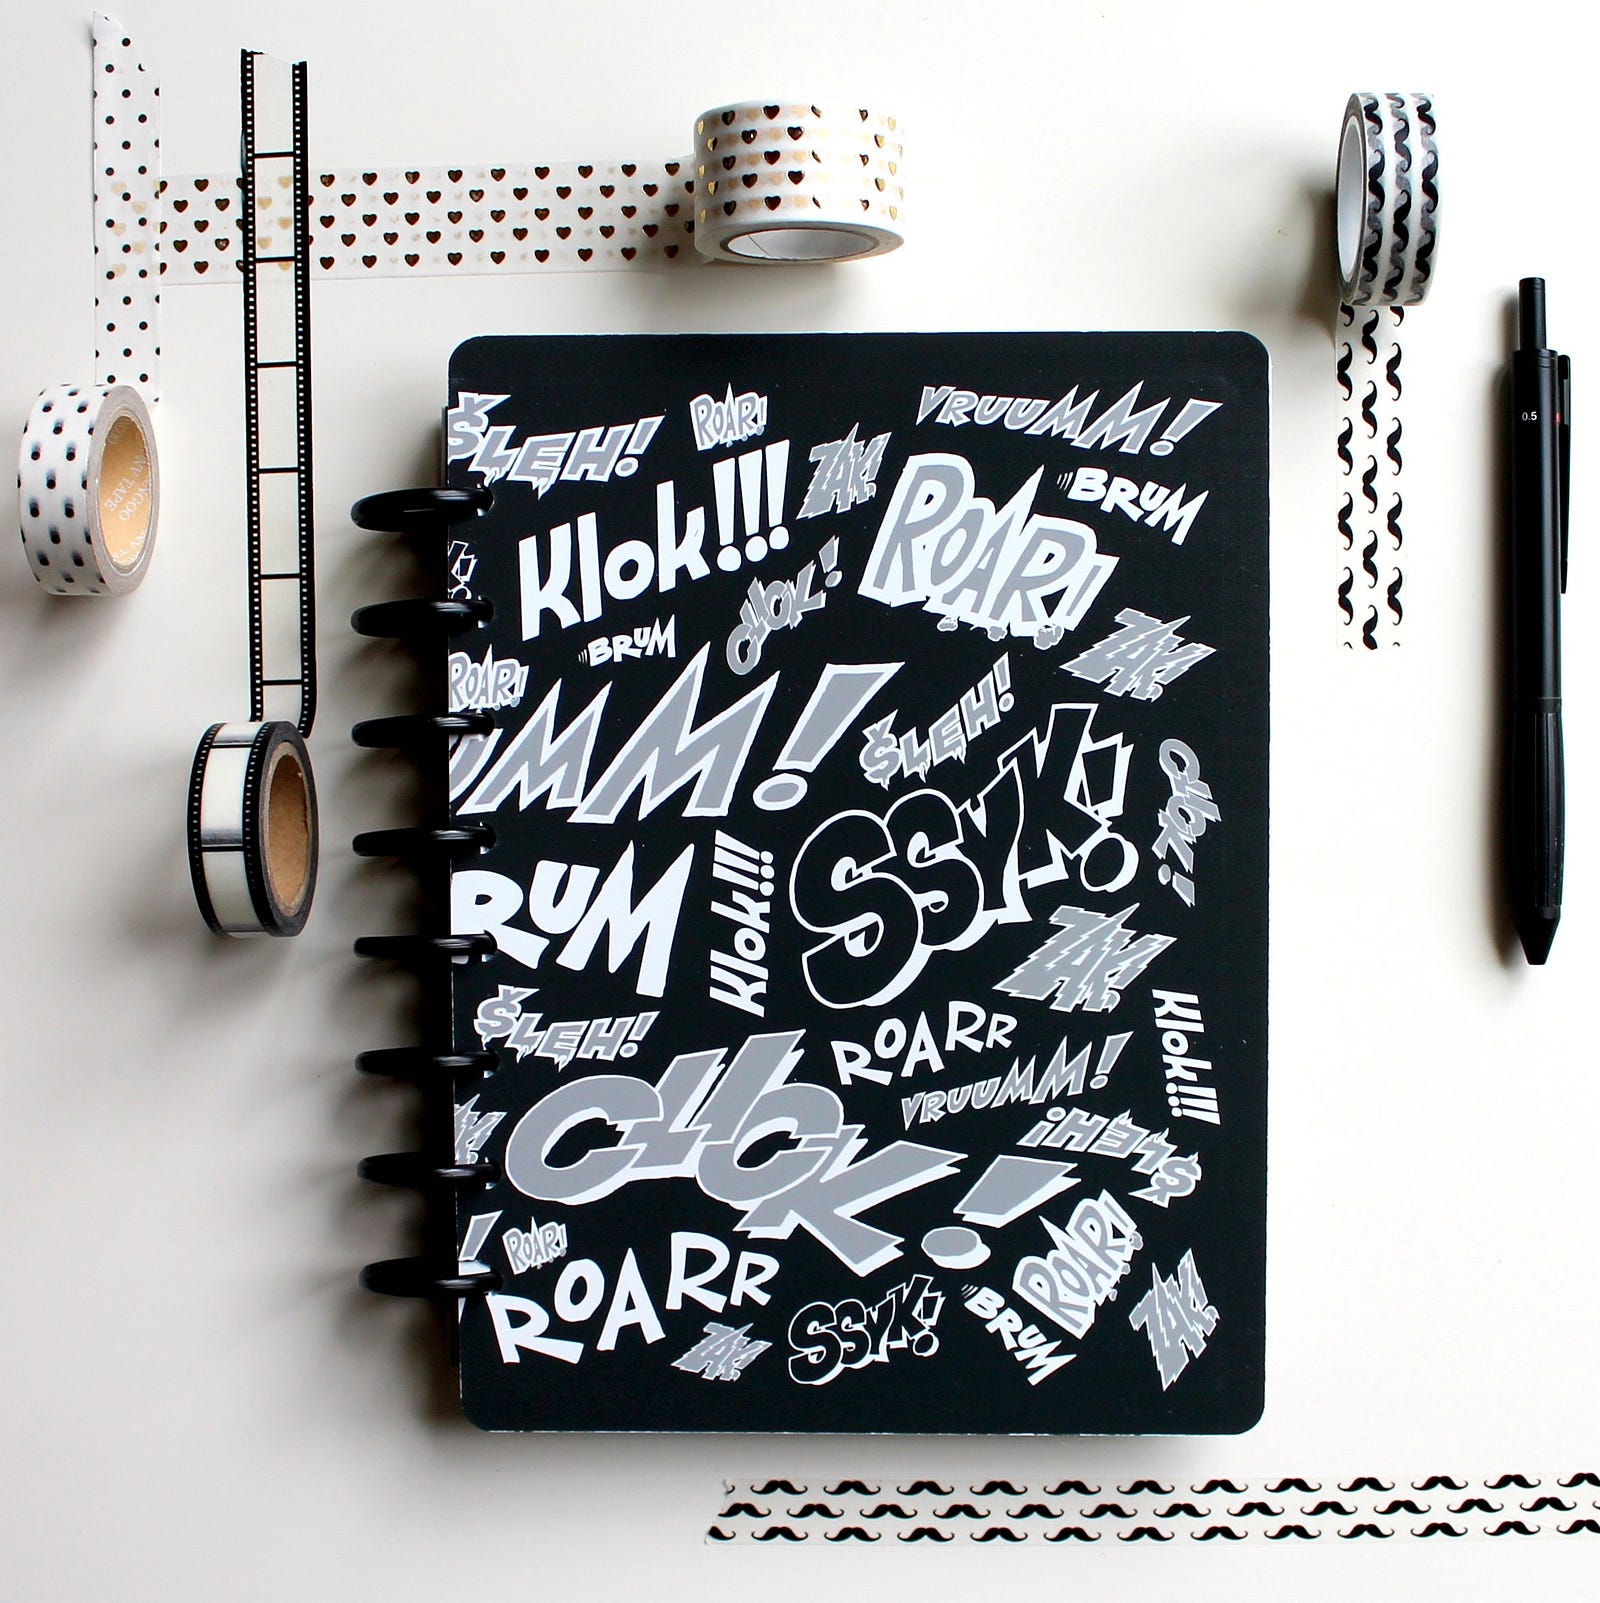 ŠLEH!
ROAR!
VRUUMM!
ZAK!
Klok!!!
ROAR!
BRUM
CLICK!
BRUM
ZAK!
ROAR!
UMM!
ŠLEH!
SSYK!
CLICK!
RUM
Klok!!!
ZAK!
ŠLEH!
ROARR
Klok!!!
VRUUMM!
CLICK!
ŠLEH!
ROAR!
ROARR
ROAR!
ZAK!
SSYK!
BRUM
ZAK!
0.5
TAPE